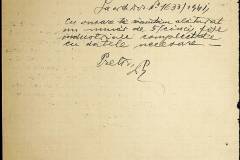 La ordin No 1633/1941
Cu onoare se înaintează alăturat
un număr de 5/cinci/ fișe
industriale complectate
cu datele necesare —
Pretor,